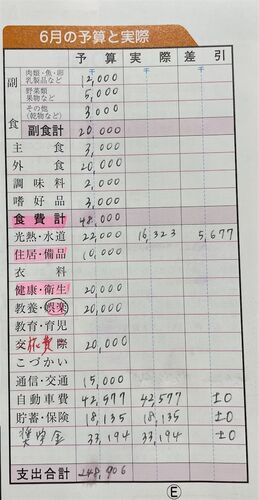 6月の予算と実際
予算 実際 差引
副食
肉類・魚・卵 乳製品など 12,000
野菜類 果物など 5,000
その他 (乾物など) 3,000
副食計 20,000
主食 3,000
外食 20,000
調味料 2,000
嗜好品 3,000
食費計 48,000
光熱・水道 22,000 16,323 5,677
住居・備品 10,000
衣料
健康・衛生 20,000
教養・娯楽 20,000
教育・育児
交際 20,000
こづかい
通信・交通 15,000
自動車費 42,577 42,577 ±0
貯蓄・保険 18,135 18,135 ±0
奨学金 33,194 33,194 ±0
支出合計 248,906
E